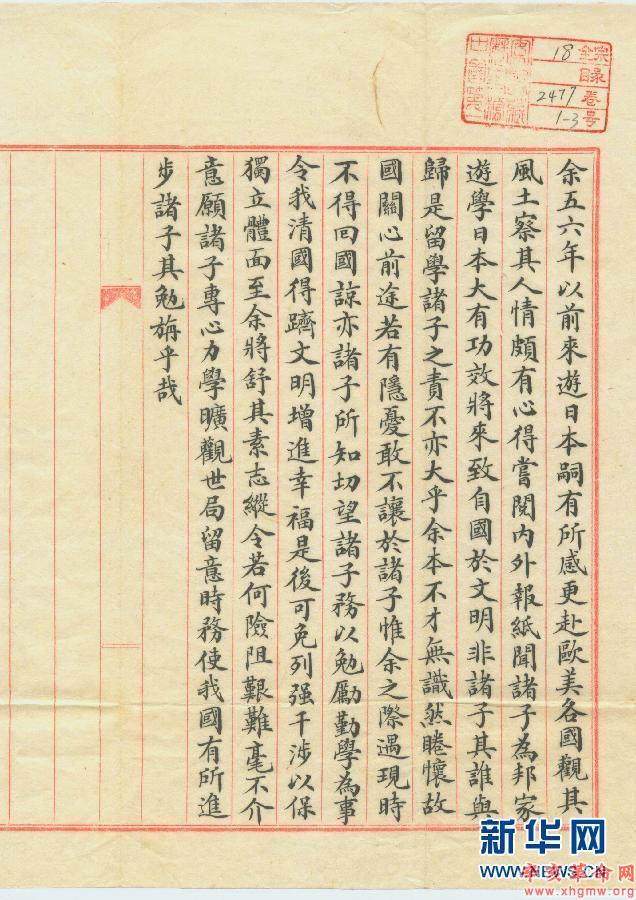 余五六年以前來遊日本嗣有所感更赴歐美各國觀其
風土察其人情頗有心得嘗閱內外報紙聞諸子為邦家
遊學日本大有功效將來致自國於文明非諸子其誰與
歸是留學諸子之責不亦大乎余本不才無識然睠懷故
國關心前途若有隱憂敢不讓於諸子惟余之際遇現時
不得回國諒亦諸子所知切望諸子務以勉勵勤學為事
令我清國得躋文明增進幸福是後可免列强干涉以保
獨立體面至余將舒其素志縱令若何險阻艱難毫不介
意願諸子專心力學曠觀世局留意時務使我國有所進
步諸子其勉旃乎哉
全宗 18
目錄
卷 2477
号 1-3
新华网
WWW.NEWS.CN
辛亥革命网
www.xhgmw.org